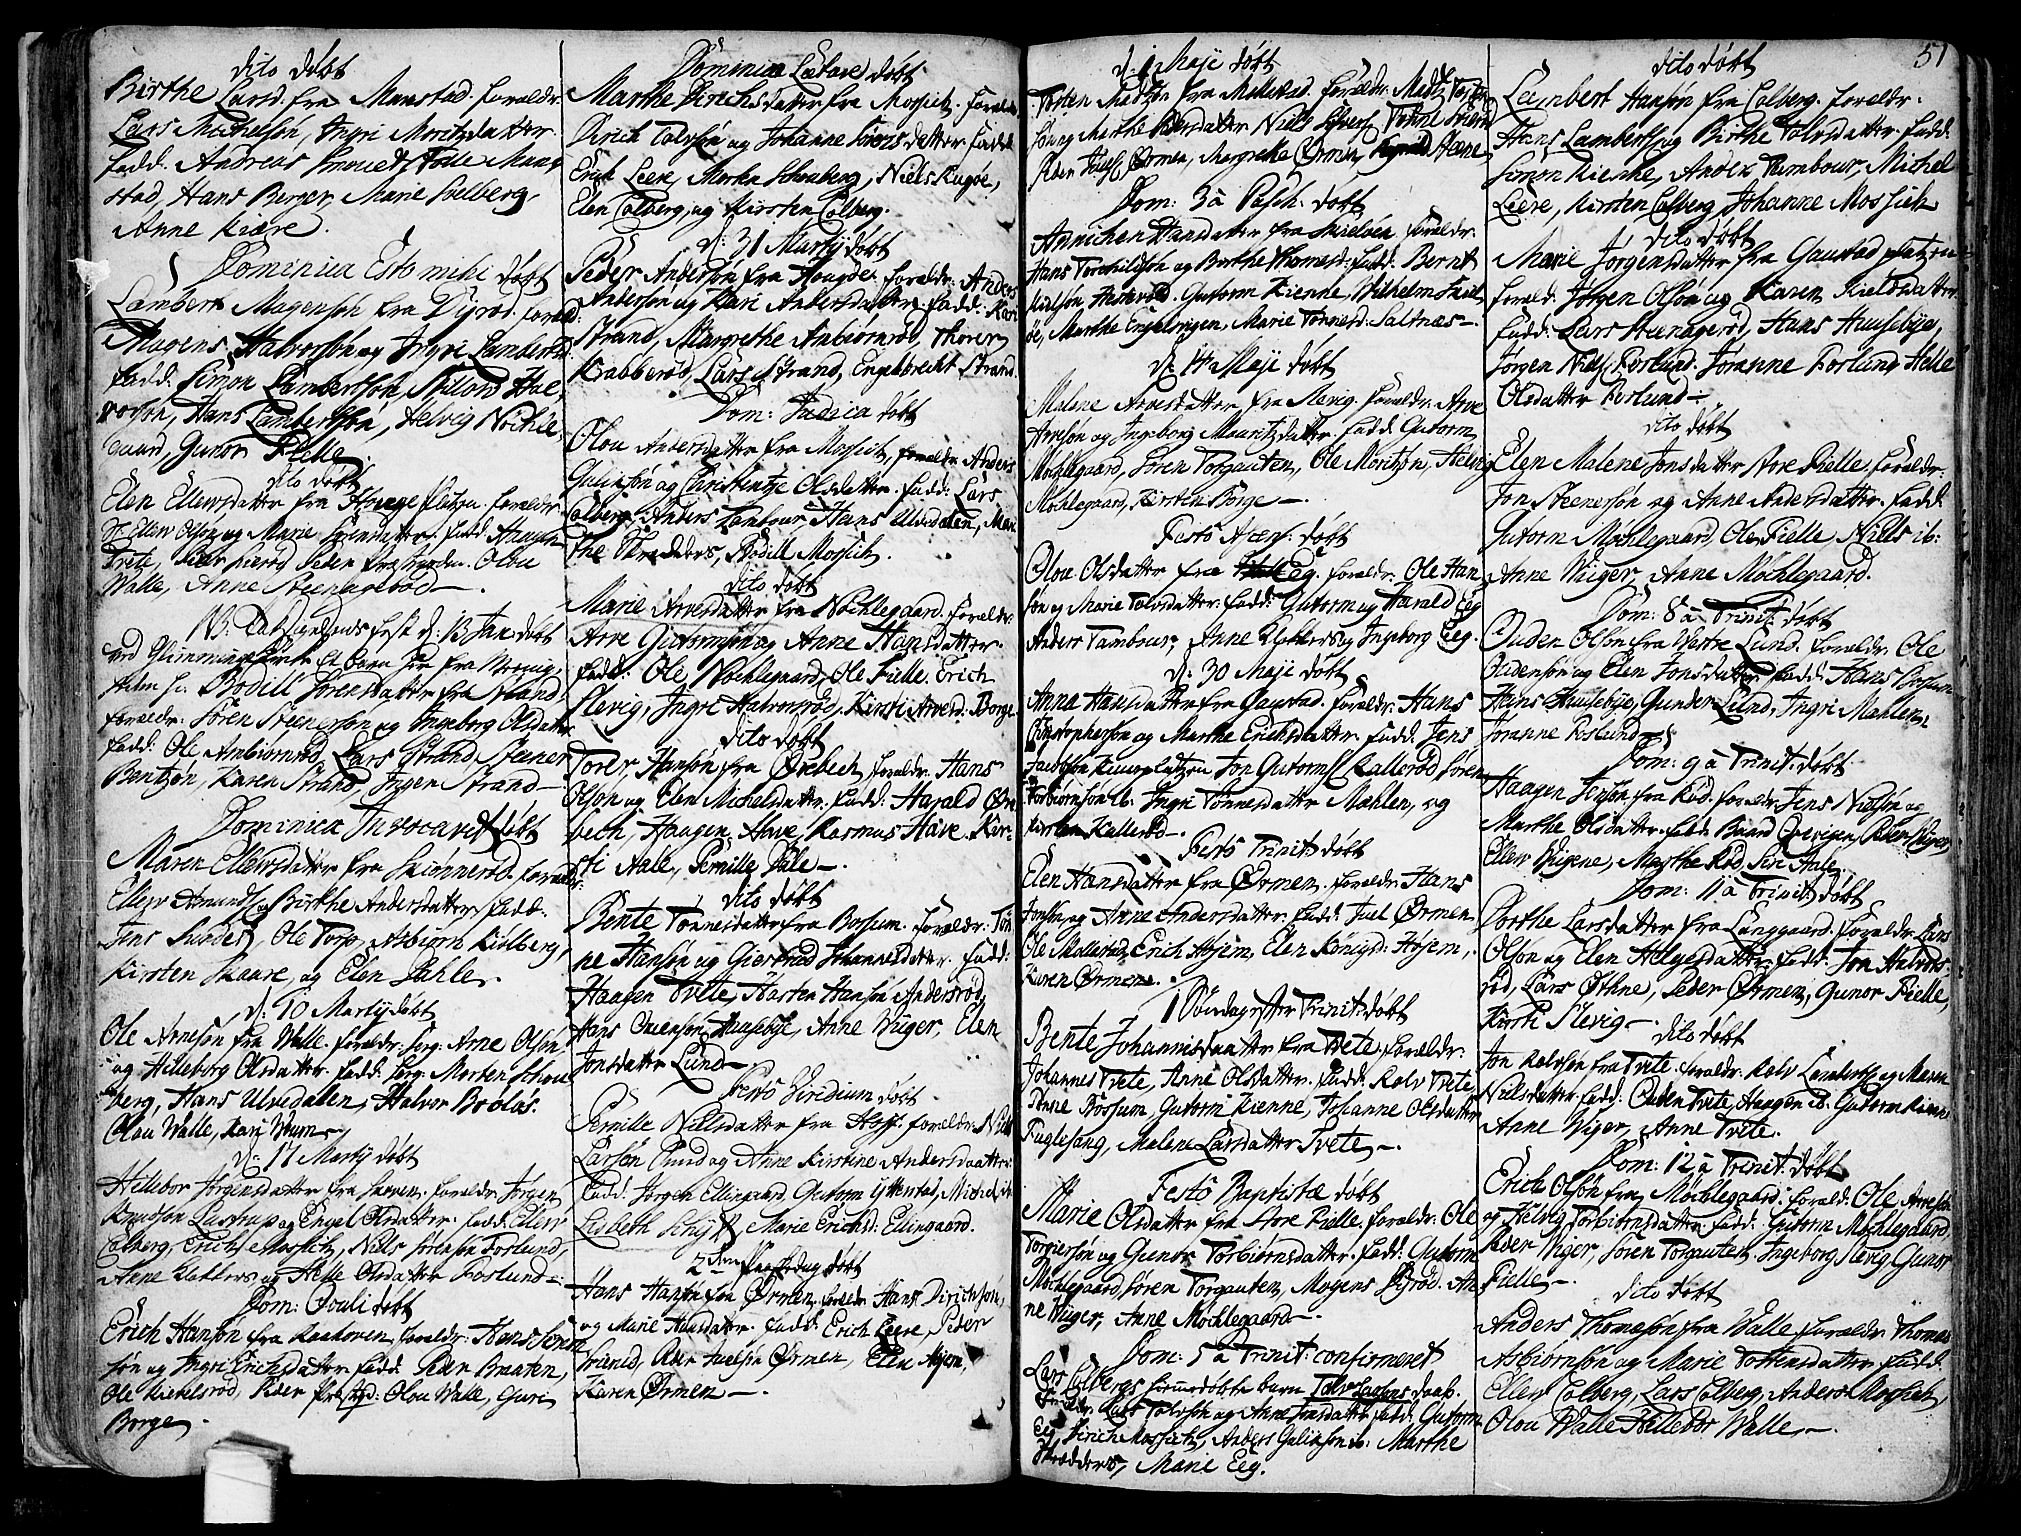 dito døbt
Birthe Larsd. fra Manstad. foreldr.
Lars Michelsøn, Ingri Moritzdatter.
fadd. Andreas Tolle Mang
stad, Hans Berger, Marie Solberg,
Anne Kiære.
Dominica Esto mihi døbt
Lambert Magensøn fra Dyrød. foreld:
Magens Halvorsøn og Ingri Lambertsd.
fadd: Simon Lambertsøn, Hal
vorsøn, Hans Lambertsøn, Helvig Nochle
gaard, Gunor Fielle.
dito døbt
Elen Ellevsdatter fra Hauge Platzen. foreldr
Ellev Olsøn og Marie Sørensdatter. fadd. Haagen
Tvete, Peder Olou
Walle, Anne Steenagerød.
NB: festo d: 13 Jan: døbt
et barn her fra
Bodill Sørensdatter fra Strand
foreldr: Søren Steenersøn og Ingeborg Olsdatter
fadd: Ole Anbiørnrød, Lars Strand, Steener
Bentzen, Karen Strand, Inger Strand
Dominica Invocavit døbt
Maren Ellevsdatter fra Skiønnerød. foreldr:
Ellev Amunds. og Birthe Andersdatter. fadd:
Jens Sundes, Ole Torp, Asbiørn Kiølberg,
Kirsten Skaare, og Elen Dahle.
d: 10 Martij døbt
Ole Arnesøn fra Walle. foreldr: Serg: Arne Olsøn
og Hilleborg Olsdatter. fadd. Serg: Morten Schou
berg, Hans Ulvedalen, Halvor Brolös.
Olou Walle, Kari
d: 17 Martij døbt
Hillebor Jørgensdatter fra Skoven. foreldr. Jørgen
Knudsøn Lastrup og Engel Olsdatter. fadd. Ellev
Colberg, Erich Mossich, Niels Sørensøn Foslund,
Anne Klokkers og Helle Olsdatter Foslund
Dom: Oculi døbt
Erich Hansøn fra foreldr: Hans Søren
søn og Ingri Erichsdatter. fadd. Peder Braaten,
Ole Peder Olou Walle, Guri
Borge.
Dominica Lætare døbt
Marthe Dirichsdatter fra Mossich. foreldr
Dirich Tolvsøn og Johanne Siversdatter. fadd.
Erich Leere, Morten Schouberg, Niels
Elen Colberg, og Kirsten Colberg.
d: 31 Martij døbt
Peder Andersøn fra Haugöe. foreldr. Anders
Andersøn og Kari Andersdatter. fadd. Kari
Strand, Margrethe Anbiørnrød, Thorer
Krabberød, Lars Strand, Engebrecht Strand
Dom: Judica døbt
Olou Andersdatter fra Mossich, foreldr. Anders
Gulichsøn og Christentze Olsdatter. fadd: Lars
Colberg, Anders Tambour, Hans Ulvedalen, Mar
the Skredders, Bodill Mossich.
dito døbt
Marie Arvesdatter fra Nochlegaard. foreldr.
Arve Gutormsøn og Anne Hansdatter.
fadd: Ole Nochlegaard, Ole Fielle, Erich
Slevig, Ingri Halvorsrød, Kirsti Arvesd: Borge
dito døbt
Torer Hansøn fra Ørebech, foreldr. Hans
Olsøn og Elen Michelsdatter. fadd: Harald Øre
bech, Haagen Have, Rasmus Have, Kir-
sti Aale, Pernille Dale.
dito døbt
Bente Tønnesdatter fra Bossum. foreldr: Tøn
ne Hansøn og Giertrud Johannesdatter. fadd:
Haagen Tvete, Hans Andersrød,
Hans Huusebye, Anne Wiger, Elen
Jonsdatter Lund
Festo Viridium døbt
Pernille Nielsdatter fra Hoff. foreldr: Niels
Larsøn og Anne Kirstine Andersdatter.
fadd: Jørgen Ellingaard, Gutorm Ystehed, Michel
Lisbeth Marie Erichsd: Ellingaard.
2den Paaskedag døbt
Hans Hansøn fra Ørmen. foreldr: Hans Dirichsøn
og Marie Hansdatter. fadd: Erich Leere, Peder
Juelsøn Ørmen, Elen
Karen Ørmen.
d: 1 Maji døbt
Torsten Madtzøn fra Mellstad. foreldr. Madtz Torsten
søn og Marthe Pedersdatter. Niels Tønne
Peder Ørmen, Margrethe Ørmen,
Dom: 3 à Pasch: døbt
Annichen Hansdatter fra foreldr.
Hans Torchildsøn og Berthe Thomesd: fadd: Bernt
Gutorm Kienne, Wilhelm
Marthe Engelsvigen, Marie Tønnesd: Saltnæs.
d: 14 Maji døbt
Malene Arvesdatter fra Slevig. foreldr: Arve
Arvesøn og Ingeborg Mauritzdatter. fadd. Gutorm
Mochlegaard, Søren Torgauten, Ole Moritzøn, Helvig
Mochlegaard, Kirsten Borge.
Festo Ascens: døbt
Olou Olsdatter fra Eeg. foreldr: Ole Han
søn og Marie Tolvsdatter. fadd: Gutorm og Harald Eeg
Anders Tambour, Anne Klokkers og Ingeborg Eeg.
d: 30 Maji døbt
Anne Hansdatter fra Gaustad. foreldr. Hans
Christophersøn og Marthe Erichsdatter. fadd: Jens
Jacobsøn Jon Gutorms. Kallerød, Søren
Torbiørnsøn ib: Ingri Tønnesdatter Mæhlen, og
Kirsten Kallerød.
Festo Trinit: døbt
Elen Hansdatter fra Ørmen. foreldr. Hans
Jonsøn og Anne Andersdatter. fadd: Juel Ørmen
Ole Mallestad, Erich Høsem, Elen Høsem,
Karen Ørmen.
1 Søndag efter Trinit: døbt
Bente Johannisdaatter fra Tvete. foreldr:
Johannes Tvete, Anne Olsdatter. fadd: Rolv Tvete,
Tønne Bossum, Gutorm Kienne, Johanne Olsdatter
Fuglesang, Malene Larsdatter Tvete.
Festo Baptistæ døbt
Marie Olsdatter fra Store Fielle. foreldr: Ole
Torgiersøn og Gunor Torbiørnsdatter. fadd: Gutorm
Mochlegaard, Søren Torgauten, Mogens Dyrød, An
ne Wiger, Anne Mochlegaard.
Dom: 5 à Trinit: confirmeret
Lars Colbergs hiemmedøbte barn Tolv Larsøns daab.
foreldr. Lars Tolvsøn og Anne Jensdatter. fadd: Gutorm
Eeg, Dirich Mossich, Anders Gulichsøn ib: Marthe
Skrædders, Marie Eeg.
51
dito døbt
Lambert Hansøn fra Colberg. foreldr.
Hans Lamberts. og Birthe Tolvsdatter. fadd.
Simon Kieche, Anders Tambour, Michel
Leere, Kirsten Colberg, Johanne Mossich
dito døbt
Marie Jørgensdatter fra Gaustad platzen
foreld: Jørgen Olsøn og Karen Kieldsdatter.
fadd: Lars Steenagerød, Hans Huusebye,
Jørgen Niels. Foslund, Joranne Foslund, Helle
Olsdatter Foslund.
dito døbt
Elen Malene Jonsdatter Store Fielle. foreldr.
Jon Steenersøn og Anne Andersdatter. fadd.
Gutorm Mochlegaard, Ole Fielle, Niels ib:
Anne Wiger, Anne Mochlegaard.
Dom: 8 à Trinit: døbt
Ouden Olsøn fra Nerre Lund. foreldr. Ole
Oudensøn og Elen Jonsdatter. fadd: Hans Bossum
Hans Huusebye, Gunder Lund, Ingri Mæhlen,
Joranne Foslund.
Dom: 9 à Trinit: døbt
Haagen Jensøn fra Rød. foreldr. Jens Nielsøn og
Marthe Olsdatter. fadd: Baard Peder Wiger,
Ellev Marthe Rød, Siri Aale.
Dom: 11 à Trinit: døbt
Dorthe Larsdatter fra Langgaard. foreldr. Lars
Olsøn og Elen Helgesdatter. fadd: Jon Halvors
rød, Lars Øthne, Peder Ørmen, Gunor Fielle,
Kirsti Slevig.
dito døbt
Jon Rolvsøn fra Tvete. foreldr. Rolv Lamberts. og Maren
Nielsdatter. fadd: Ouden Tvete, Haagen ib: Gutorm Kienne
Anne Wiger, Anne Tvete.
Dom: 12 à Trinit: døbt
Erich Olsøn fra Mochlegaard. foreld: Ole Arvesøn
og Helvig Torbiørnsdatter. fadd: Gutorm Mochlegaard
Peder Wiger, Søren Torgauten, Ingeborg Slevig, Gunor
Fielle.
dito døbt
Anders Thomesøn fra Walle. foreldr. Thomas
Asbiørnsøn og Marie Tostensdatter. fadd.
Ellev Colberg, Lars Colberg, Anders Mossich,
Olou Walle, Hillebor Walle.